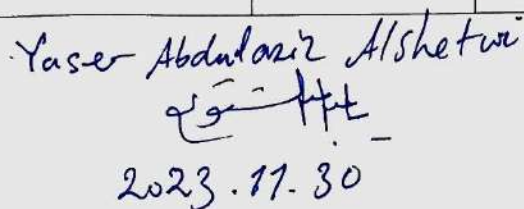 Yaser Abdulaziz Alshetwi
2023.11.30